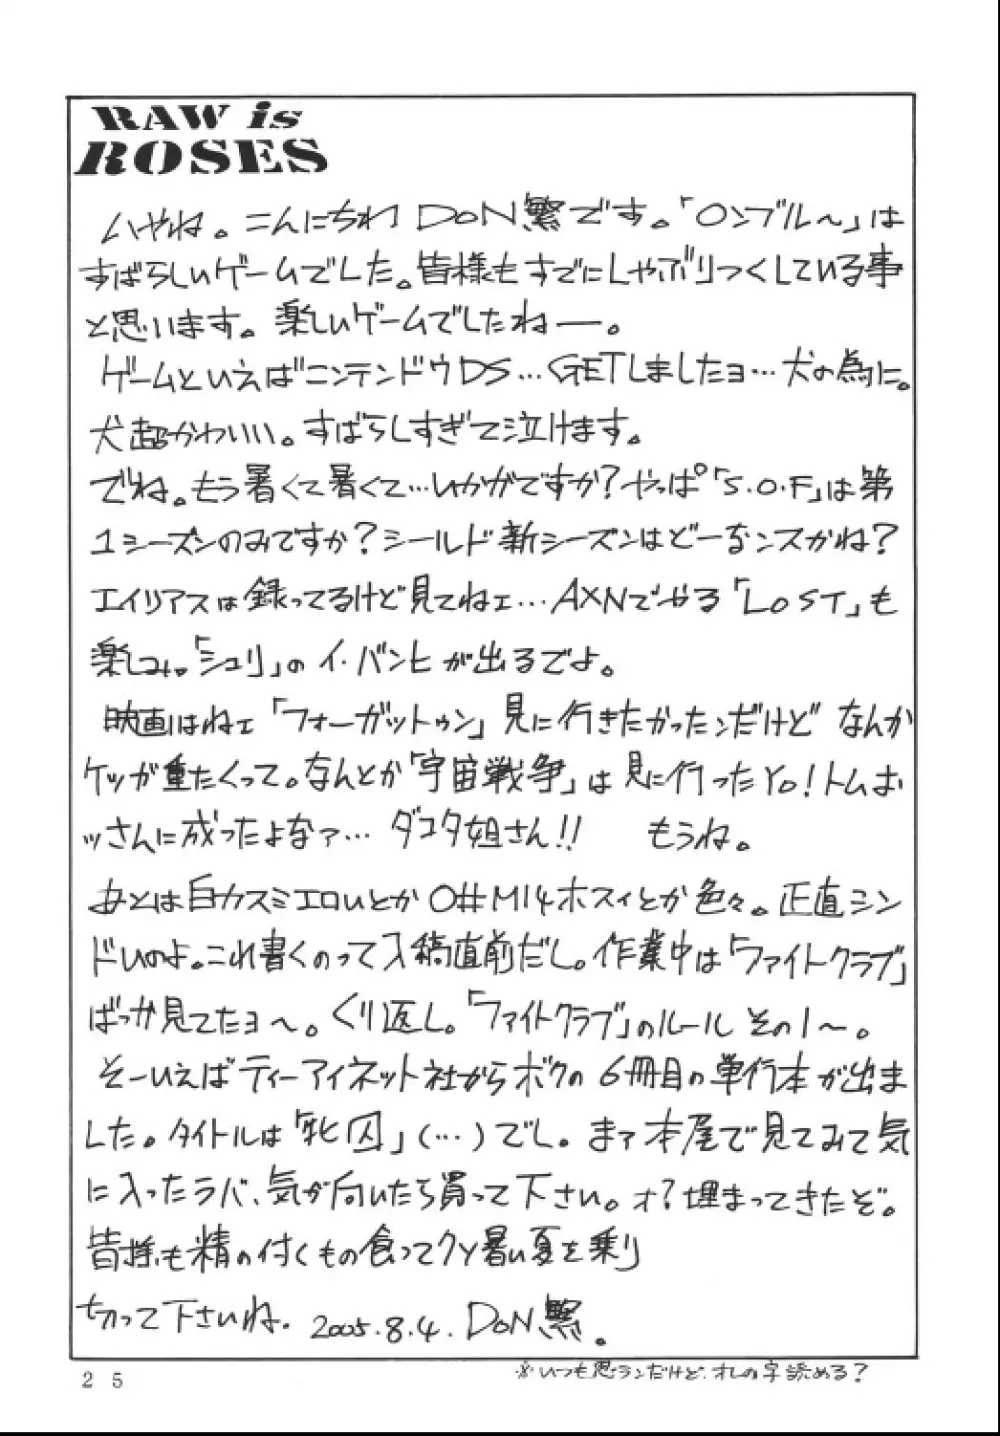 RAW is
ROSES
ハやね。こんにちわ DoN繁です。「ロンブル〜」は
すばらしいゲームでした。皆様もすでにしゃぶりつくしている事
と思います。楽しいゲームでしたねー。
ゲームといえばニンテンドウDS…GETしましたョ…犬の為に。
犬超かわいい。すばらしすぎて泣けます。
でね。もう暑くて暑くて…いかがですか?やっぱ「S.O.F」は第
1シーズンのみですか?シールド新シーズンはどーなンスかね?
エイリアスは録ってるけど見てねェ…AXNでやる「LOST」も
楽しみ。「シュリ」のイ・バンヒが出るでよ。
映画はねェ「フォーガットゥン」見に行きたかったンだけど なんか
ケツが重たくって。なんとか「宇宙戦争」は見に行ったYo!トムおッ
ッさんに成ったよなァ… ダコタ姐さん!! もうね。
あとは白カスミエロいとか O#M14ホスィとか色々。正直シン
ドいのよ。これ書くのって入稿直前だし。作業中は「ファイトクラブ」
ばっか見てたョ〜。くり返し。「ファイトクラブ」のルール その1〜。
そーいえばティーアイネット社からボクの6冊目の単行本が出ま
した。タイトルは「牝囚」(…)でし。まァ本屋で見てみて気
に入ったラバ、気が向いたら買って下さい。オ?埋まってきたぞ。
皆様も精の付くもの食ってクソ暑い夏を乗り
切って下さいね。2005.8.4.DoN繁。
25
※いつも思うンだけど、オレの字読める?